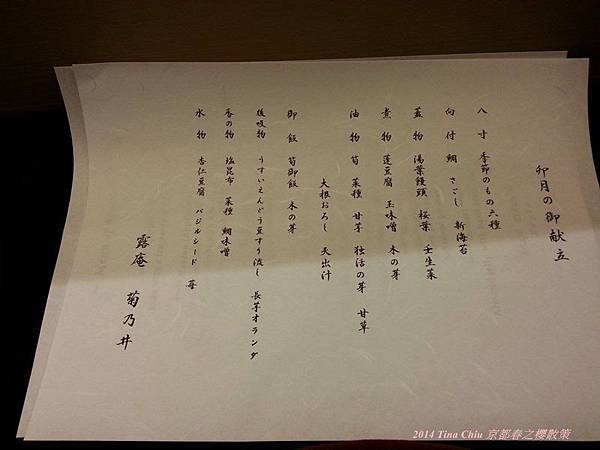 卯月の御献立
八寸 季節のもの六種
向付 鯛 さごし 新海苔
蓋物 湯葉饅頭 桜葉 壬生菜
煮物 蓬豆腐 玉味噌 木の芽
油物 筍 菜種 甘芋 独活の芽 甘草
大根おろし 天出汁
御飯 筍御飯 木の芽
後吸物 うすいえんどう豆すり流し 長芋オランダ
香の物 塩昆布 菜種 鯛味噌
水物 杏仁豆腐 バジルシード 苺
露庵 菊乃井
2014 Tina Chiu 京都春之櫻散策